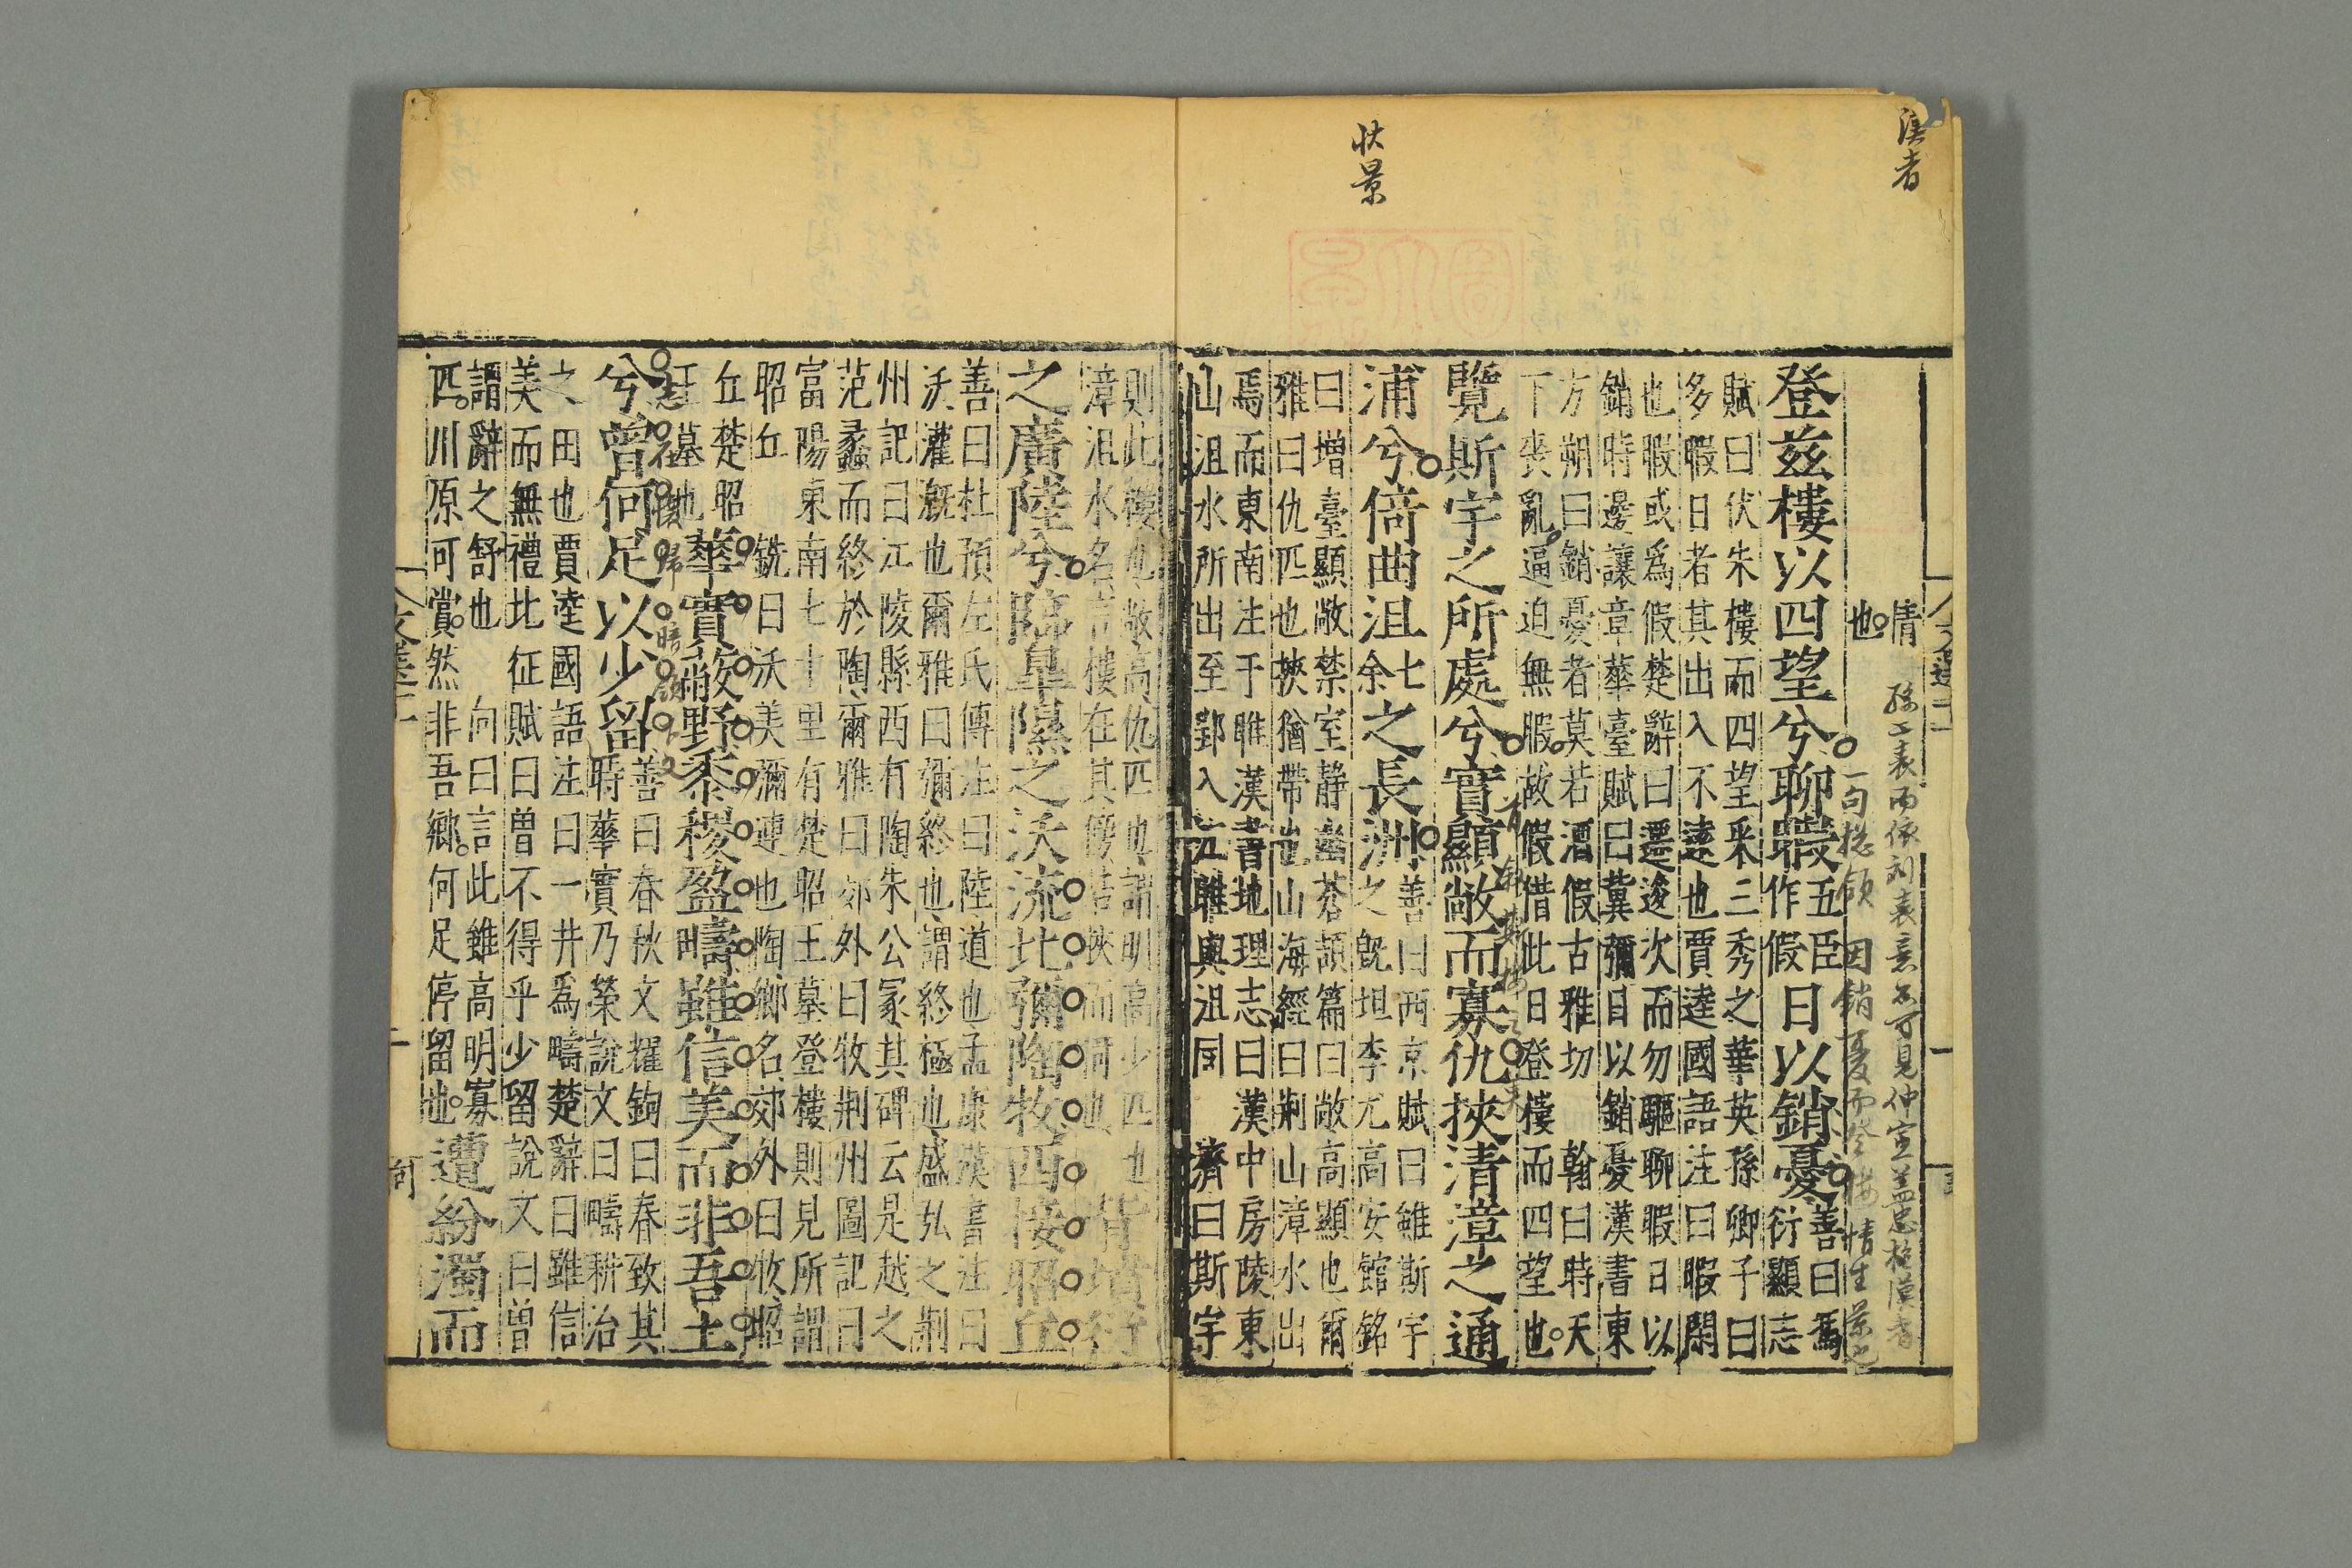 漢者
狀景
情
也
一句總領因銷憂而登樓情生景也
登茲樓以四望兮聊暇作假五臣日以銷憂善曰馮衍顯志
賦曰伏朱樓而四望采三秀之華英孫卿子曰
多暇日者其出入不遠也賈逵國語注曰暇閑
也暇或為假楚辭曰遷逡次而勿驅聊暇日以
銷時邊讓章華臺賦曰冀彌日以銷憂漢書東
方朔曰銷憂者莫若酒假古雅切 翰曰時天
下喪亂逼迫無暇故假借此日登樓而四望也
覽斯宇之所處兮實顯敞而寡仇挾清漳之通
浦兮倚曲沮七余之長洲善曰西京賦曰雖斯宇之既坦李尤高安館銘
曰增臺顯敞禁室靜幽蒼頡篇曰敞高顯也爾
雅曰仇匹也挾猶帶也山海經曰荆山漳水出
焉而東南注于睢漢書地理志曰漢中房陵東
山沮水所出至郢入江睢與沮同 濟曰斯宇
則此樓也敞高仇匹也謂明高少匹也
漳沮水名言樓在其傍 背墳衍
之廣陸兮臨皋隰之沃流北彌陶牧西接昭丘
善曰杜預左氏傳注曰陸道也孟康漢書注曰
沃灌溉也爾雅曰彌終也謂終極也盛弘之荆
州記曰江陵縣西有陶朱公冢其碑云是越之
范蠡而終於陶爾雅曰郊外曰牧荆州圖記曰
富陽東南七十里有楚昭王墓登樓則見所謂
昭丘 銑曰沃美彌連也陶鄉名郊外曰牧昭
丘楚昭王墓也華實蔽野黍稷盈疇雖信美而非吾土
兮曾何足以少留善曰春秋文耀鉤曰春致其時華實乃榮說文曰疇耕治
之田也賈逵國語注曰一井為疇楚辭曰雖信
美而無禮北征賦曰曾不得乎少留說文曰曾
謂辭之舒也 向曰言此雖高明寡
匹川原可賞然非吾鄉何足停留也遭紛濁而